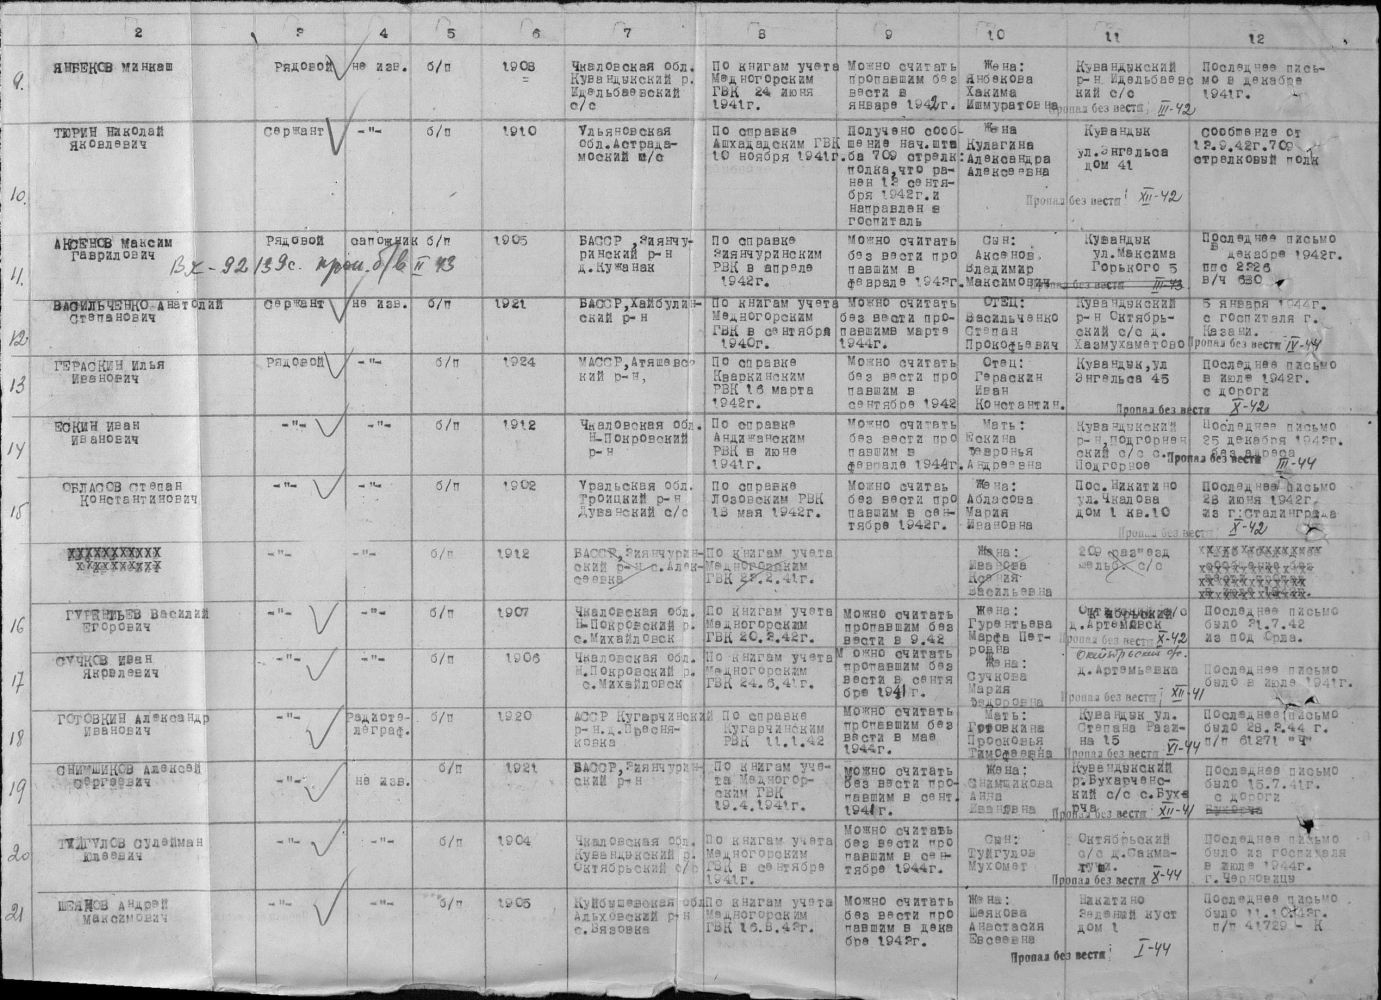 2 3 4 5 6 7 8 9 10 11 12
9.
ЯНБЕКОВ Минкаш
Рядовой
не изв.
б/п
1908
Чкаловская обл.
Кувандыкский р.
Идельбаевский
с/с
По книгам учета
Медногорским
ГВК 24 июня
1941г.
Можно считать
пропавшим без
вести в
январе 1942г.
Жена:
Янбекова
Хакима
Ишмуратовна
Кувандыкский
р-н Идельбаевс
кий с/с
Пропал без вести III-42
Последнее пись-
мо в декабре
1941г.
10.
ТЮРИН Николай
Яковлевич
Сержант
-"-
б/п
1910
Ульяновская
обл.Астрада-
мовский с/с
По справке
Ашхададским ГВК
10 ноября 1941г.
Получено сооб-
щение нач.шта
ба 709 стрелк:
полка,что ра-
нен 12 сентя-
бря 1942г.и
направлен в
госпиталь
Жена
Кулагина
Александра
Алексеевна
Кувандык
ул.Энгельса
дом 41
Пропал без вести XII-42
Сообщение от
12.9.42г.709
стрелковый полк
11.
АКСЕНОВ Максим
Гаврилович
Вх-92139с. проп. б/в II 43
Рядовой
сапожник
б/п
1905
БАССР,Зиянчу-
ринский р-н
д.Кужанак
По справке
Зиянчуринским
РВК в апреле
1942г.
Можно считать
без вести про
павшим в
феврале 1943г.
Сын:
Аксенов
Владимир
Максимович
Кувандык
ул.Максима
Горького 5
Пропал без вести III-43
Последнее письмо
в декабре 1942г.
ппс 2226
в/ч 680
12
ВАСИЛЬЧЕНКО Анатолий
Степанович
Сержант
не изв.
б/п
1921
БАССР,Хайбулин-
ский р-н
По книгам учета
Медногорским
ГВК в сентября
1940г.
Можно считать
без вести про-
павшимв марте
1944г.
ОТЕЦ:
Васильченко
Степан
Прокофьевич
Кувандыкский
р-н Октябрь-
ский с/с д.
Хазмухаметово
5 января 1944г.
с госпиталя г.
Казани.
Пропал без вести IV-44
13
ГЕРАСКИН Илья
Иванович
Рядовой
-"-
б/п
1924
МАССР,Атяшевс
кий р-н,
По справке
Кваркинским
РВК 16 марта
1942г.
Можно считать
без вести про
павшим в
сентябре 1942
Отец:
Гераскин
Иван
Константин.
Кувандык,ул
Энгельса 45
Последнее письмо
в июле 1942г.
с дороги
Пропал без вести X-42
14
ЕСКИН Иван
Иванович
-"-
-"-
б/п
1912
Чкаловская обл.
Н-Покровский
р-н
По справке
Андижанским
РВК в июне
1941г.
Можно считать
без вести про
павшим в
феврале 1944г.
Мать:
Ескина
Февронья
Андреевна
Кувандыкский
р-н,подгорнен
ский с/с с.
Подгорное
Последнее письмо
25 декабря 1943г.
без адреса
Пропал без вести III-44
15
ОБЛАСОВ Степан
Константинович
-"-
-"-
б/п
1902
Уральская обл.
Троицкий р-н
Дуванский с/с
По справке
Лозовским РВК
18 мая 1942г.
Можно считаь
без вести про
павшим в сен-
тябре 1942г.
Жена:
Абласова
Мария
Ивановна
Пос.Никитино
ул.Чкалова
дом 1 кв.10
Последнее письмо
28 июня 1942г.
из г.Сталинграда
Пропал без вести X-42
ХХХХХХХХХХХ
ХХХХХХХХХХ
-"-
-"-
б/п
1912
БАССР,Зиянчурин-
ский р-н с.Алек-
сеевка
По книгам учета
Медногорским
ГВК 22.2.41г.
Жена:
Иванова
Ксения
Васильевна
209 раз"езд
мельб. с/с
16
ГУРЕНТЬЕВ Василий
Егорович
-"-
-"-
б/п
1907
Чкаловская обл.
Н-Покровский р.
с.Михайловск
По книгам учета
Медногорским
ГВК 20.2.42г.
Можно считать
пропавшим без
вести в 9.42
Жена:
Гурентьева
Марфа Пет-
ровна
д.Артемовск
Пропал без вести X-42
Последнее письмо
было 21.7.42
из под Орла.
17
СУЧКОВ Иван
Яковлевич
-"-
-"-
б/п
1906
Чкаловская обл.
Н.Покровский р.
с.Михайловск
По книгам учета
Медногорским
ГВК 24.6.41г.
Можно считать
пропавшим без
вести в сентя
бре 1941г.
Жена:
Сучкова
Мария
Федоровна
Октябрьский с/с.
д.Артемьевка
Пропал без вести XII-41
Последнее письмо
было в июле 1941г.
18
ГОТОВКИН Александр
Иванович
-"-
Радиоте-
леграф.
б/п
1920
АССР Кугарчинский
р-н.д.Вресня-
ковка
По справке
Кугарчинским
РВК 11.1.42
Можно считать
пропавшим без
вести в мае
1944г.
Мать:
Готовкина
Просковья
Тимофеевна
Кувандык ул.
Степана Рази-
на 15
Пропал без вести VI-44
Последнее письмо
было 28.2.44 г.
п/п 61271 "Ч"
19
СНИМЩИКОВ Алексей
Сергеевич
-"-
не изв.
б/п
1921
БАССР,Зиянчурин-
ский р-н
По книгам уче-
та Медногор-
ским ГВК
19.4.1941г.
Можно считать
без вести про-
павшим в сент.
1941г.
Жена:
Снимщикова
Анна
Ивановна
Кувандыкский
р.Бухарченс-
кий с/с с.Буха
рча
Пропал без вести XII-41
Последнее письмо
было 15.7.41г.
с дороги
20
ТУЙГУЛОВ Сулейман
Юлаевич
-"-
-"-
б/п
1904
Чкаловская обл.
Кувандыкский р.
Октябрьский с/с
По книгам учета
Медногорским
ГВК в сентябре
1941г.
Можно считать
без вести про
павшим в сен-
тябре 1944г.
Сын:
Туйгулов
Мухомет
Октябрьский
с/с д.Сакма-
Пропал без вести X-44
Последнее письмо
было из госпиталя
в июле 1944г.
г.Черновицы
21
ШЕЯНОВ Андрей
Максимович
-"-
-"-
б/п
1905
Куйбышевская обл
Альховский р-н
с.Вязовка
По книгам учета
Медногорским
ГВК 16.5.42г.
Можно считать
без вести про
павшим в дека
бре 1943г.
Жена:
Шеякова
Анастасия
Евсеевна
Никитино
Зеленый куст
дом 1
Пропал без вести I-44
Последнее письмо
было 11.10.43г.
п/п 41729 - К